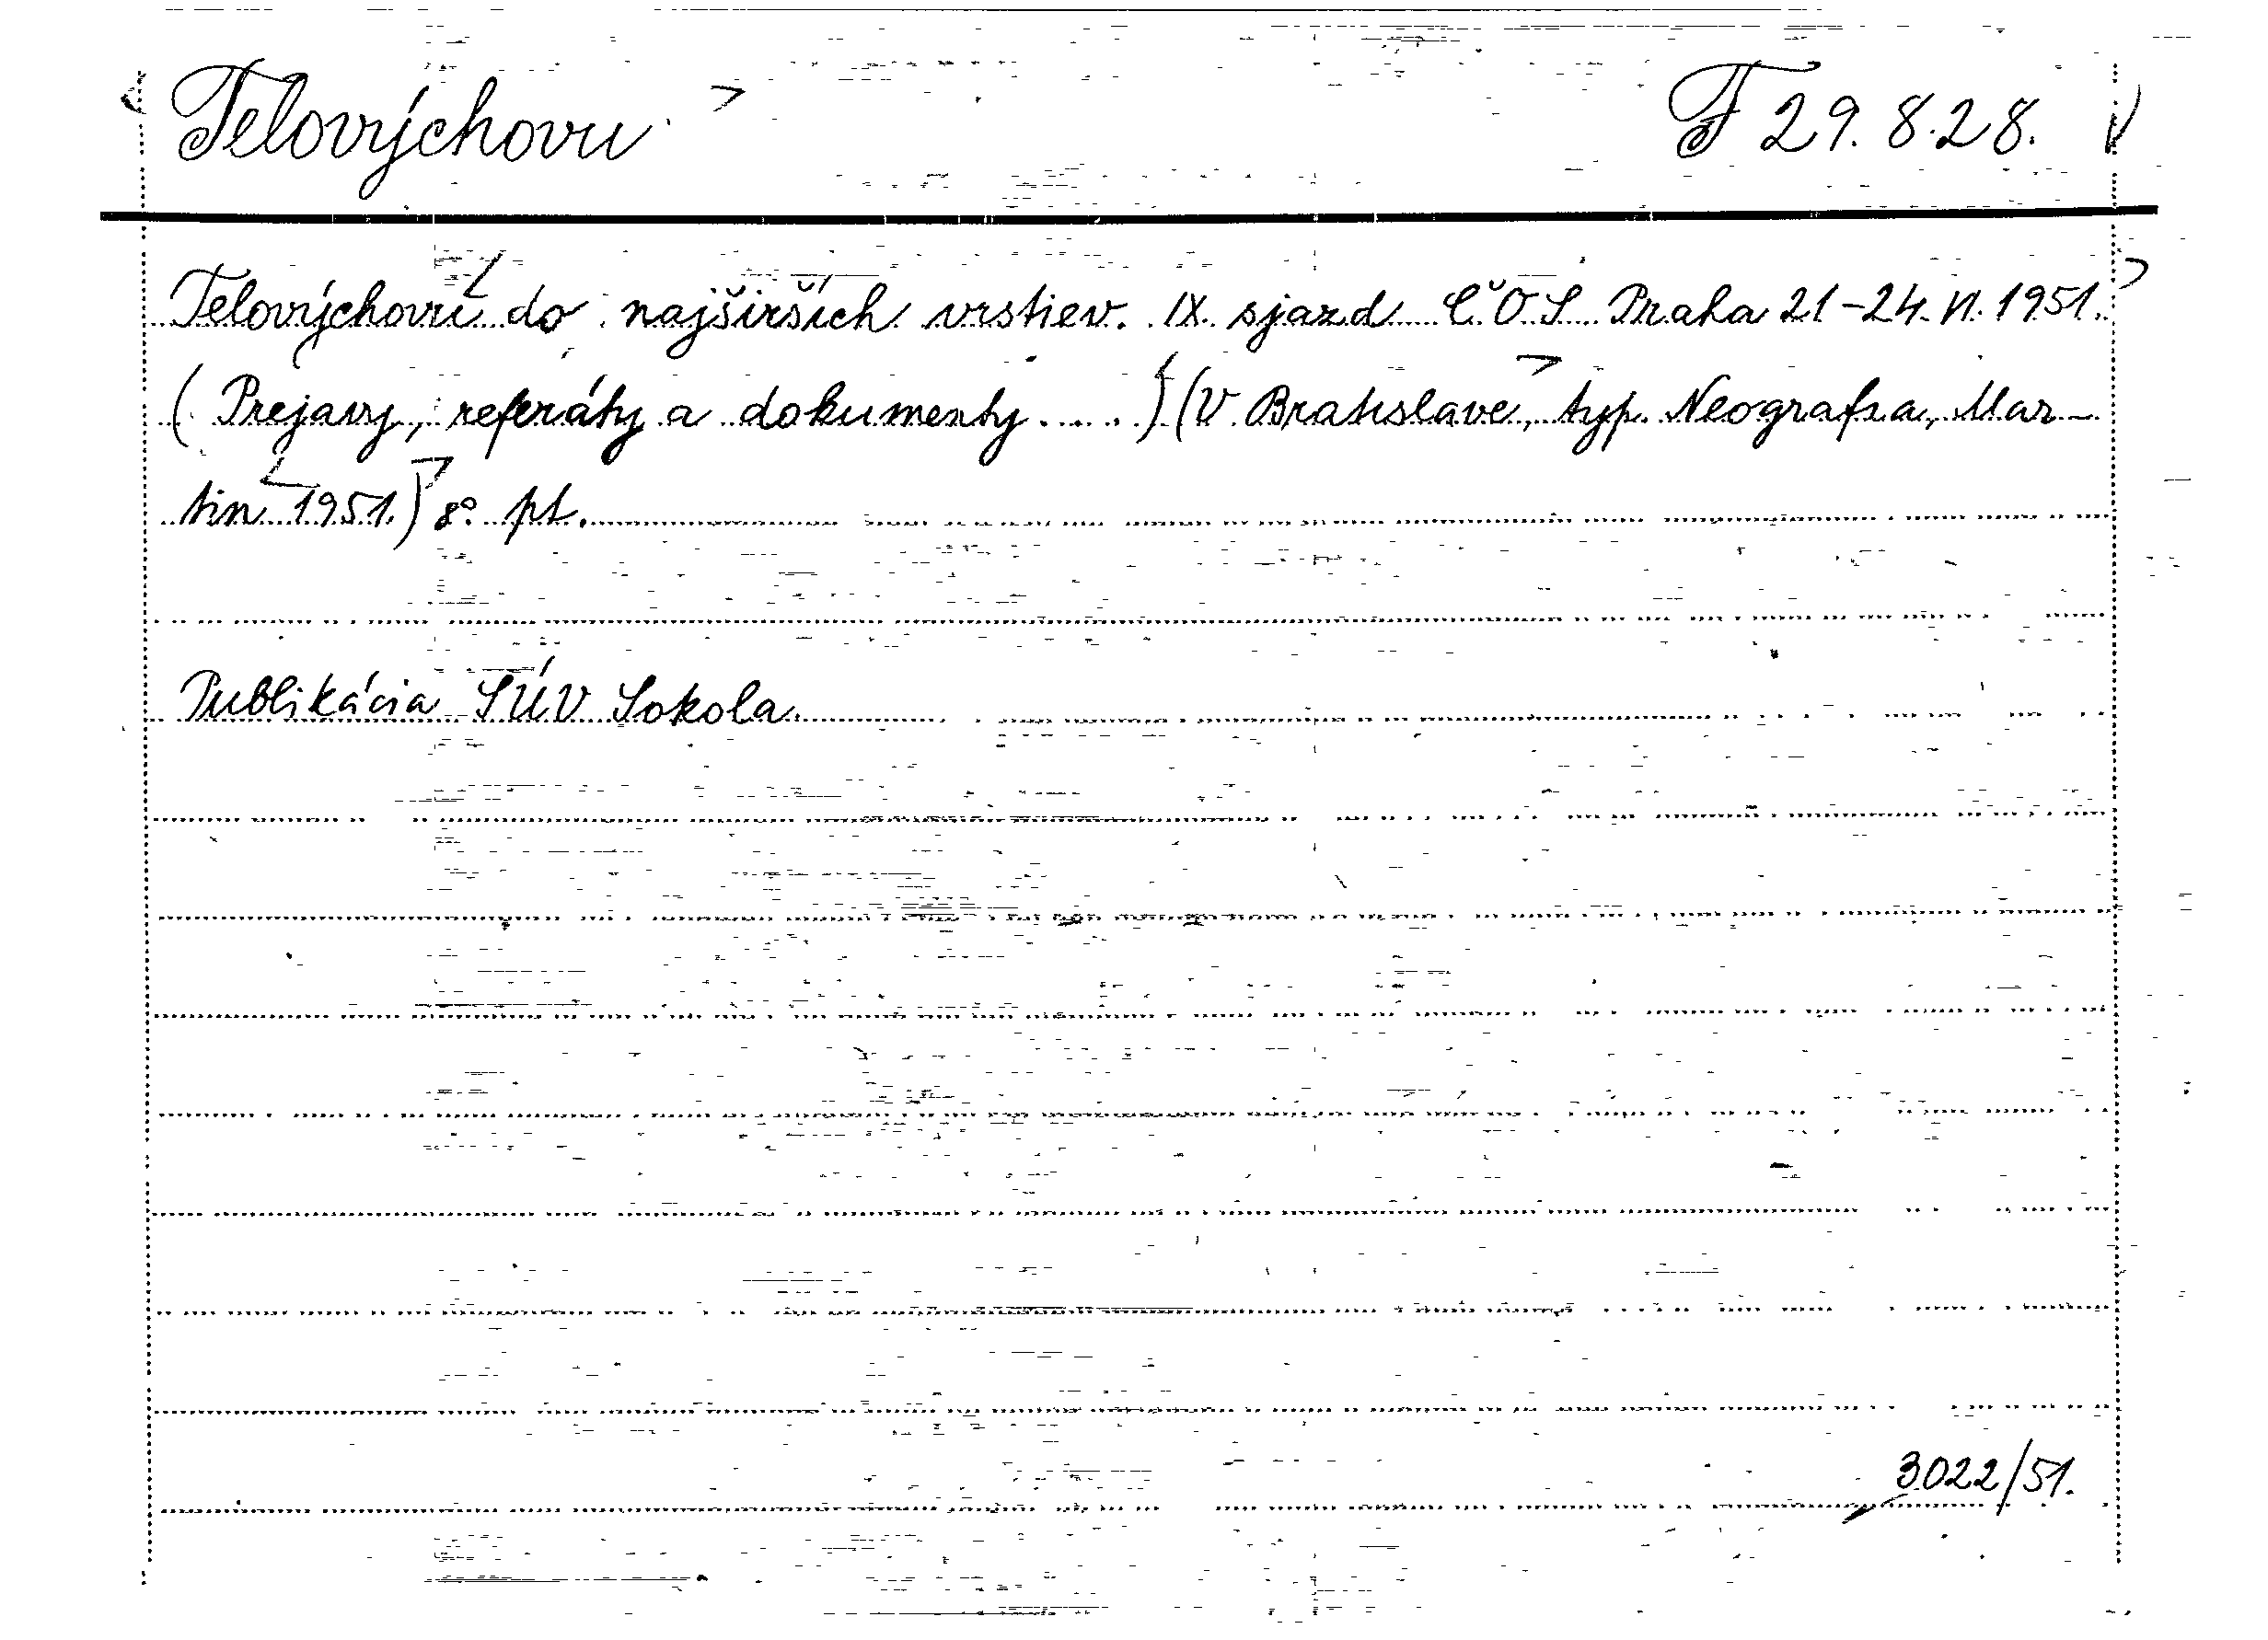 Telovýchovu F 29.828.
Telovýchovu do najširších vrstiev. IX. sjazd Č.O.S. Praha 21-24. VI. 1951.
(Prejavy, referáty a dokumenty.....) (V Bratislave, typ. Neografia, Mar-
tin 1951.) 8°. pt.
Publikácia SÚV Sokola.
3022/51.